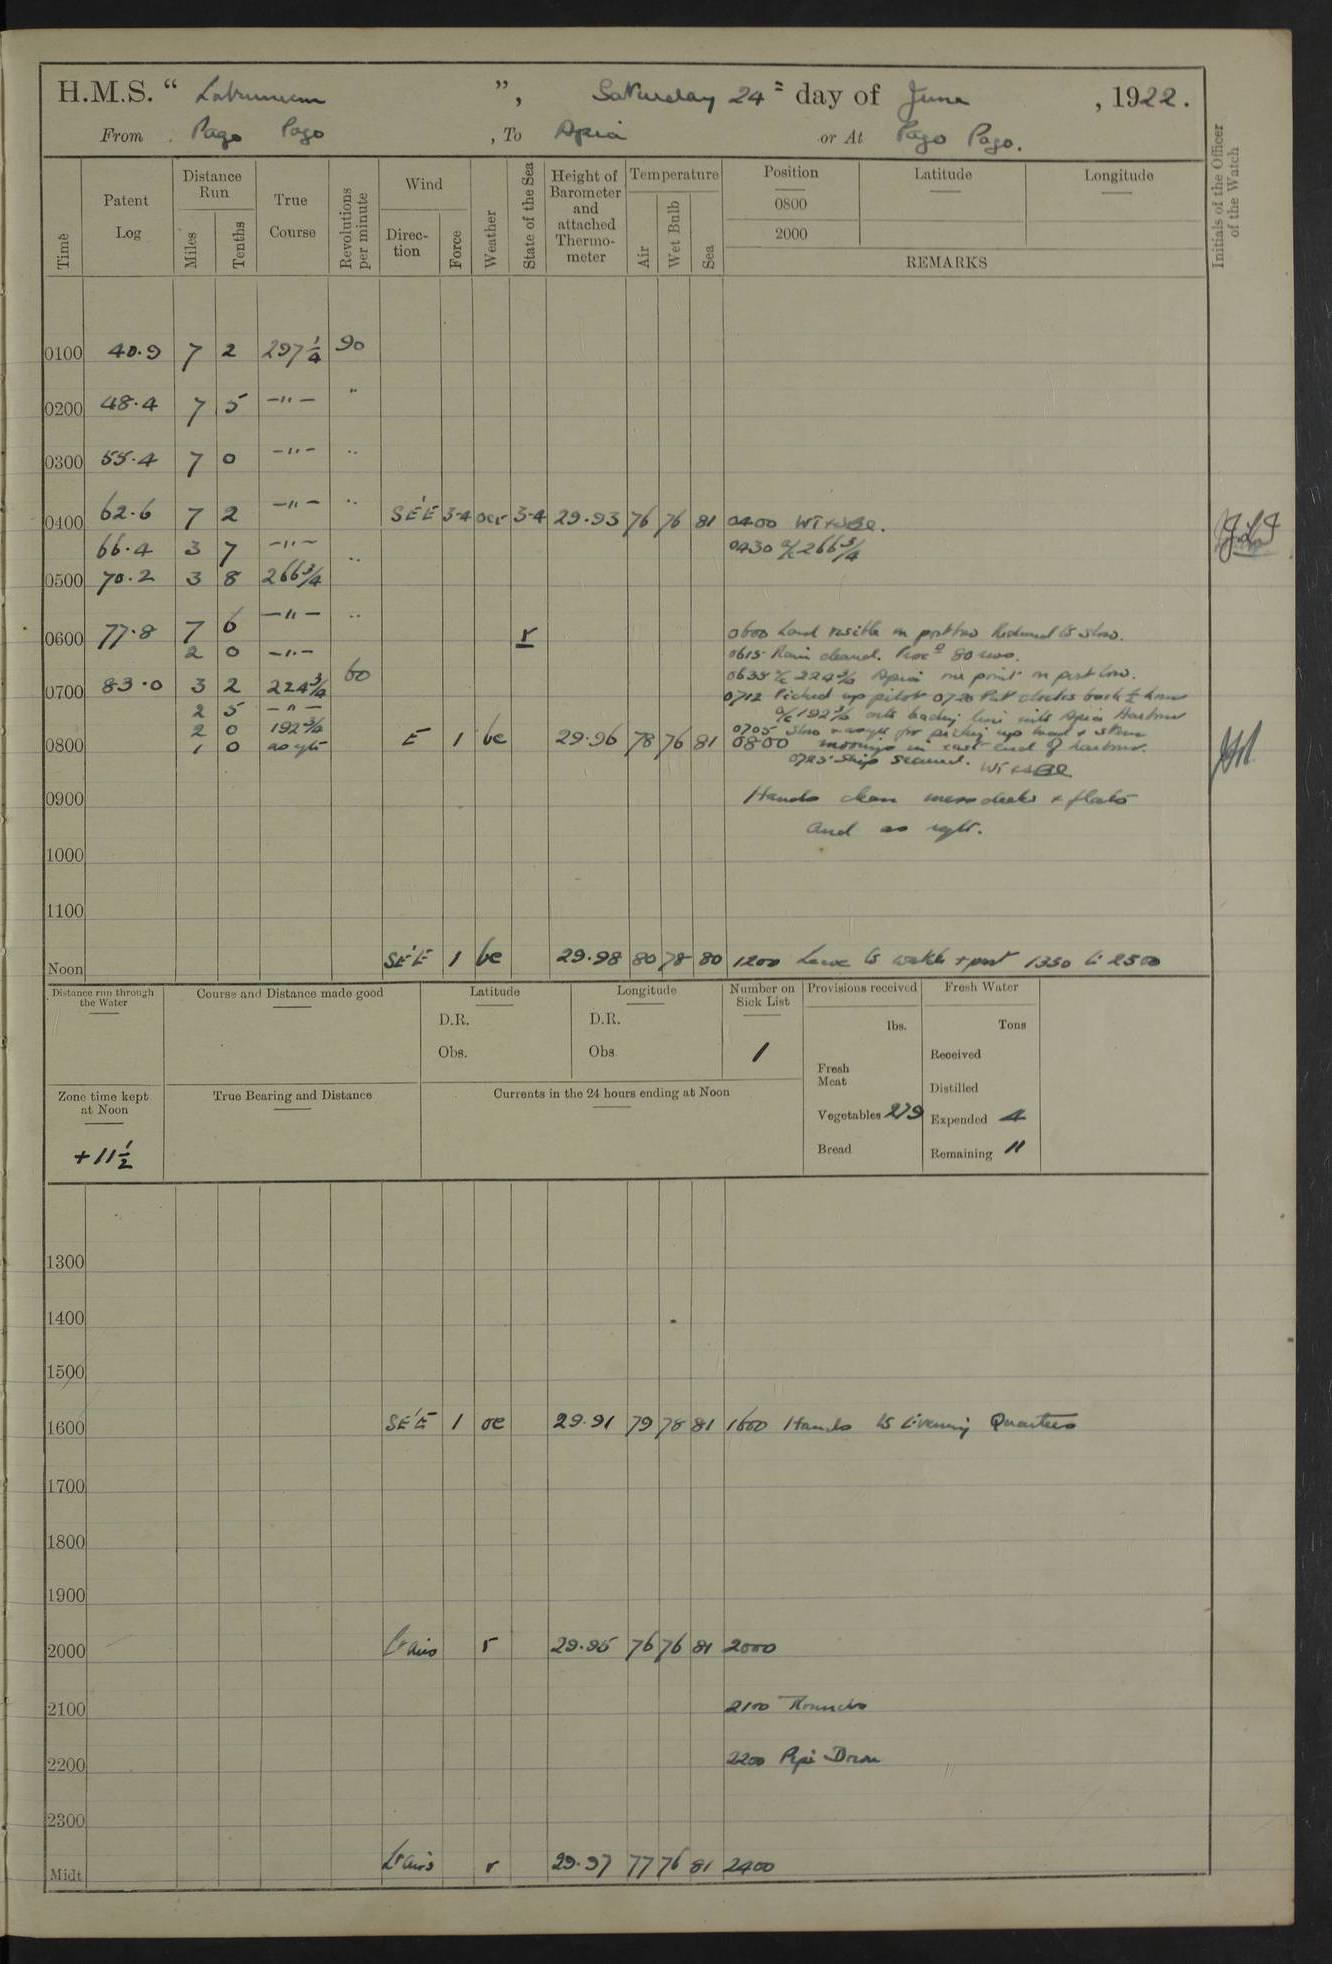 H.M.S. “ Laburnum ”, Saturday 24th day of June, 1922.
From Pago Pago, To Apia or At Pago Pago.
Time
Patent Log
Distance Run
Miles
Tenths
True Course
Revolutions per minute
Wind
Direction
Force
Weather
State of the Sea
Height of Barometer and attached Thermometer
Temperature
Air
Wet Bulb
Sea
Position
0800
2000
Latitude
Longitude
REMARKS
Initials of the Officer of the Watch
0100 40.9 7 2 297 1/4 90
0200 48.4 7 5 —"— "
0300 55.4 7 0 —"— "
0400 62.6 7 2 —"— " SE'E 3-4 ocr 3-4 29.93 76 76 81 0400
66.4 3 7 —"— 0430 a/c 266 3/4
0500 70.2 3 8 266 3/4 "
0600 77.8 7 6 —"— " r 0600 Land visible on port bow Reduced to slow.
2 0 —"— 0615 Rain cleared. Proc'd 80 revs.
0700 83.0 3 2 224 3/4 60 0635 a/c 224 3/4 Apia one point on port bow.
2 5 —"— 0712 Picked up pilot 0720 Put clocks back 1/2 hour
2 0 192 3/4 a/c 192 3/4 onto leading line into Apia Harbour
1 0 as req 0705 Slow for picking up head & stern
0800 E 1 bc 29.96 78 76 81 0800 moorings in east end of harbour.
0725 Ship secured.
0900 Hands clean mess decks & flats
and as reqte.
1000
1100
Noon SE'E 1 bc 29.98 80 78 80 1200 Leave to watch & part 1330 to 2300
Distance run through the Water
Course and Distance made good
Latitude
D.R.
Obs.
Longitude
D.R.
Obs.
Number on Sick List
1
Provisions received
lbs.
Fresh Meat
Vegetables 279
Bread
Fresh Water
Tons
Received
Distilled
Expended 4
Remaining 11
Zone time kept at Noon
+11 1/2
True Bearing and Distance
Currents in the 24 hours ending at Noon
1300
1400
1500
1600 SE'E 1 oc 29.91 79 78 81 1600 Hands to Evening Quarters
1700
1800
1900
2000 Lt airs r 29.95 76 76 81 2000
2100 2100 Rounds
2200 2200 Pipe Down
2300
Midt Lt airs r 29.97 77 76 81 2400